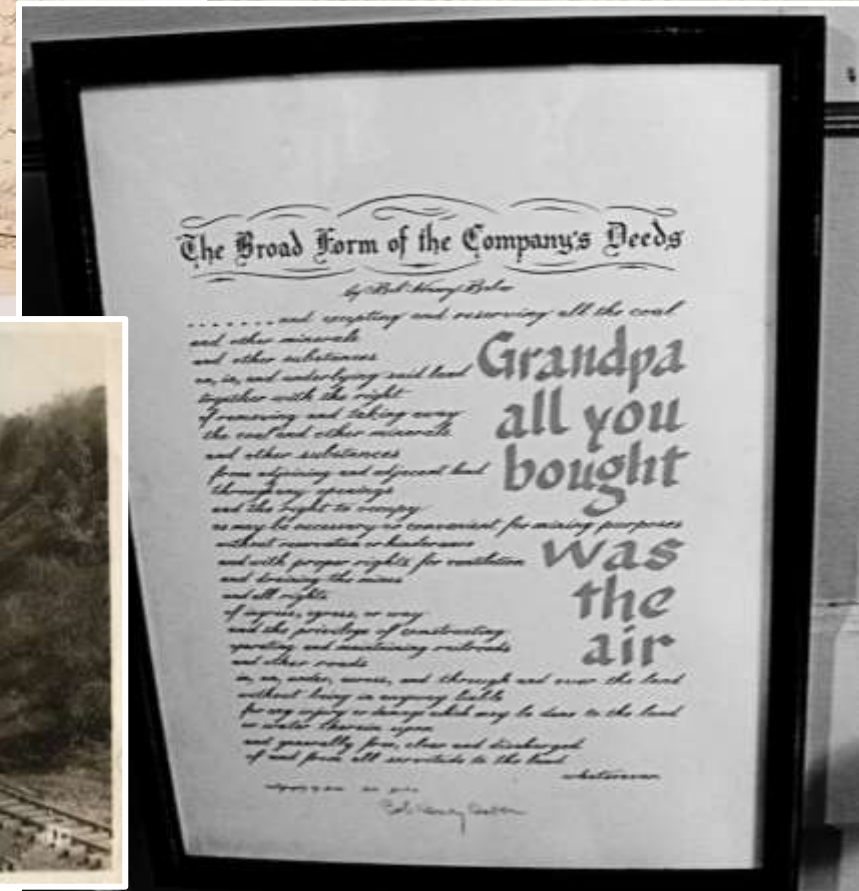 The Broad Form of the Company's Deeds
by Bob Henry Baber
.......and excepting and reserving all the coal
and other minerals
and other substances
on, in, and underlying said land
together with the right
of removing and taking away
the coal and other minerals
and other substances
from adjoining and adjacent land
through any openings
and the right to occupy
as may be necessary or convenient for mining purposes
without reservation or hinderance
and with proper rights for ventilation
and draining the mines
and all rights
of ingress, egress, or way
and the privilege of constructing
operating and maintaining railroads
and other roads
in, on, under, across, and through and over the land
without being in anyway liable
for any injury or damage which may be done to the land
or water therein upon
and generally free, clear and discharged
of and from all servitude to the land
whatsoever
Grandpa
all you
bought
was
the
air
Bob Henry Baber